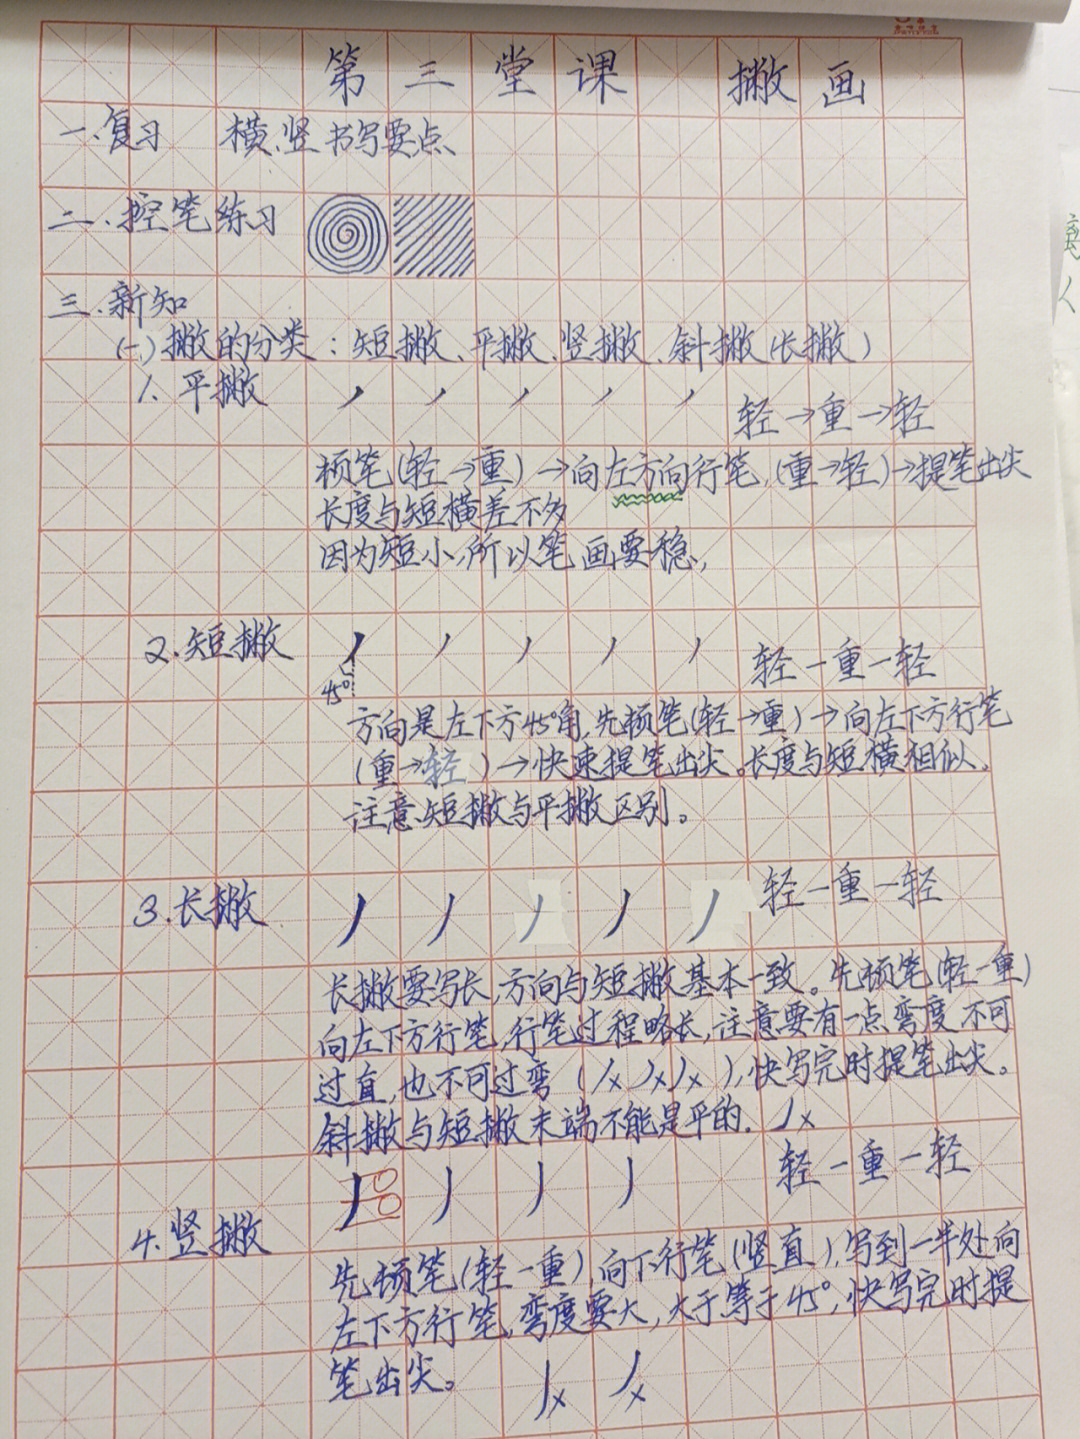 第三堂课 撇画
一.复习 横、竖书写要点、
二.控笔练习
三.新知
(一)撇的分类：短撇、平撇、竖撇、斜撇(长撇)
1.平撇 轻→重→轻
顿笔(轻→重)→向左方向行笔,(重→轻)→提笔出尖
长度与短横差不多
因为短小,所以笔画要稳,
2.短撇 轻-重-轻
45°
方向是左下方45°角,先顿笔(轻→重)→向左下方行笔
(重→轻)→快速提笔出尖。长度与短横相似。
注意短撇与平撇区别。
3.长撇 轻-重-轻
长撇要写长,方向与短撇基本一致。先顿笔(轻-重)
向左下方行笔,行笔过程略长,注意要有一点弯度不可
过直,也不可过弯(丿x丿x丿x),快写完时提笔出尖。
斜撇与短撇末端不能是平的. 丿x
轻-重-轻
4.竖撇
先顿笔(轻-重),向下行笔(竖直),写到一半处向
左下方行笔,弯度要大,大于等于45°,快写完时提
笔出尖。 丿x 丿x